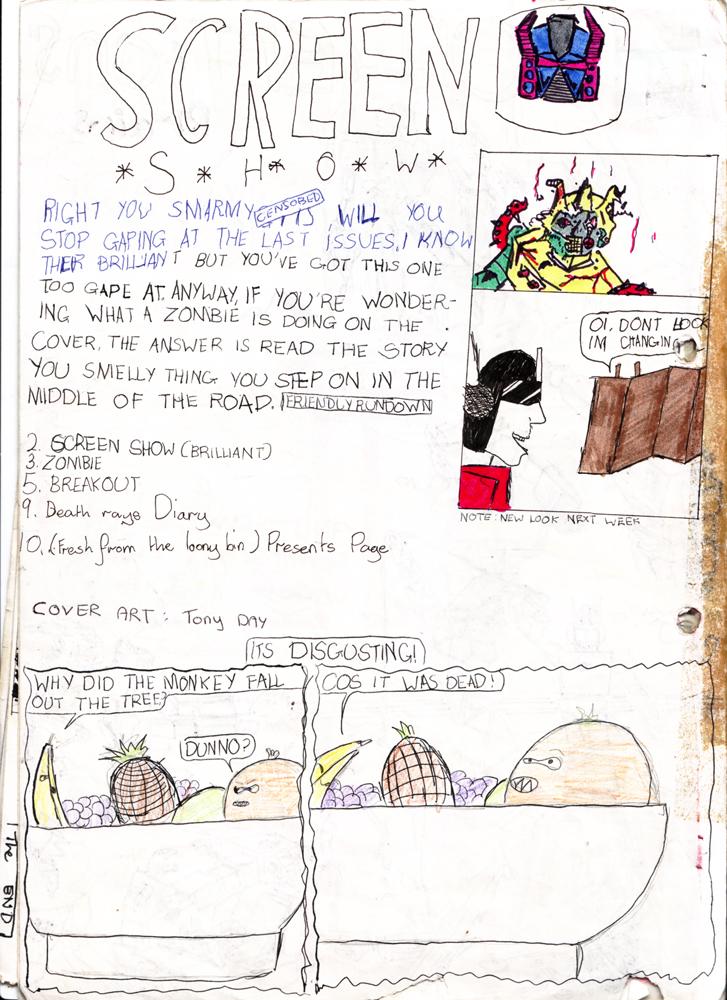 SCREEN
*S*H*O*W*
RIGHT YOU SMARMY CENSOBED GITS, WILL YOU
STOP GAPING AT THE LAST ISSUES, I KNOW
THEIR BRILLIANT BUT YOU'VE GOT THIS ONE
TOO GAPE AT. ANYWAY, IF YOU'RE WONDER-
ING WHAT A ZOMBIE IS DOING ON THE
COVER, THE ANSWER IS READ THE STORY
YOU SMELLY THING YOU STEP ON IN THE
MIDDLE OF THE ROAD. FRIENDLY RUNDOWN
2. SCREEN SHOW (BRILLIANT)
3. ZOMBIE
5. BREAKOUT
9. Death rays Diary
10. (Fresh from the loony bin) Presents Page
COVER ART: Tony DAY
OI, DONT LOOK
IM CHANGING
NOTE: NEW LOOK NEXT WEEK
ITS DISGUSTING!
WHY DID THE MONKEY FALL
OUT THE TREE?
DUNNO?
COS IT WAS DEAD!
The END